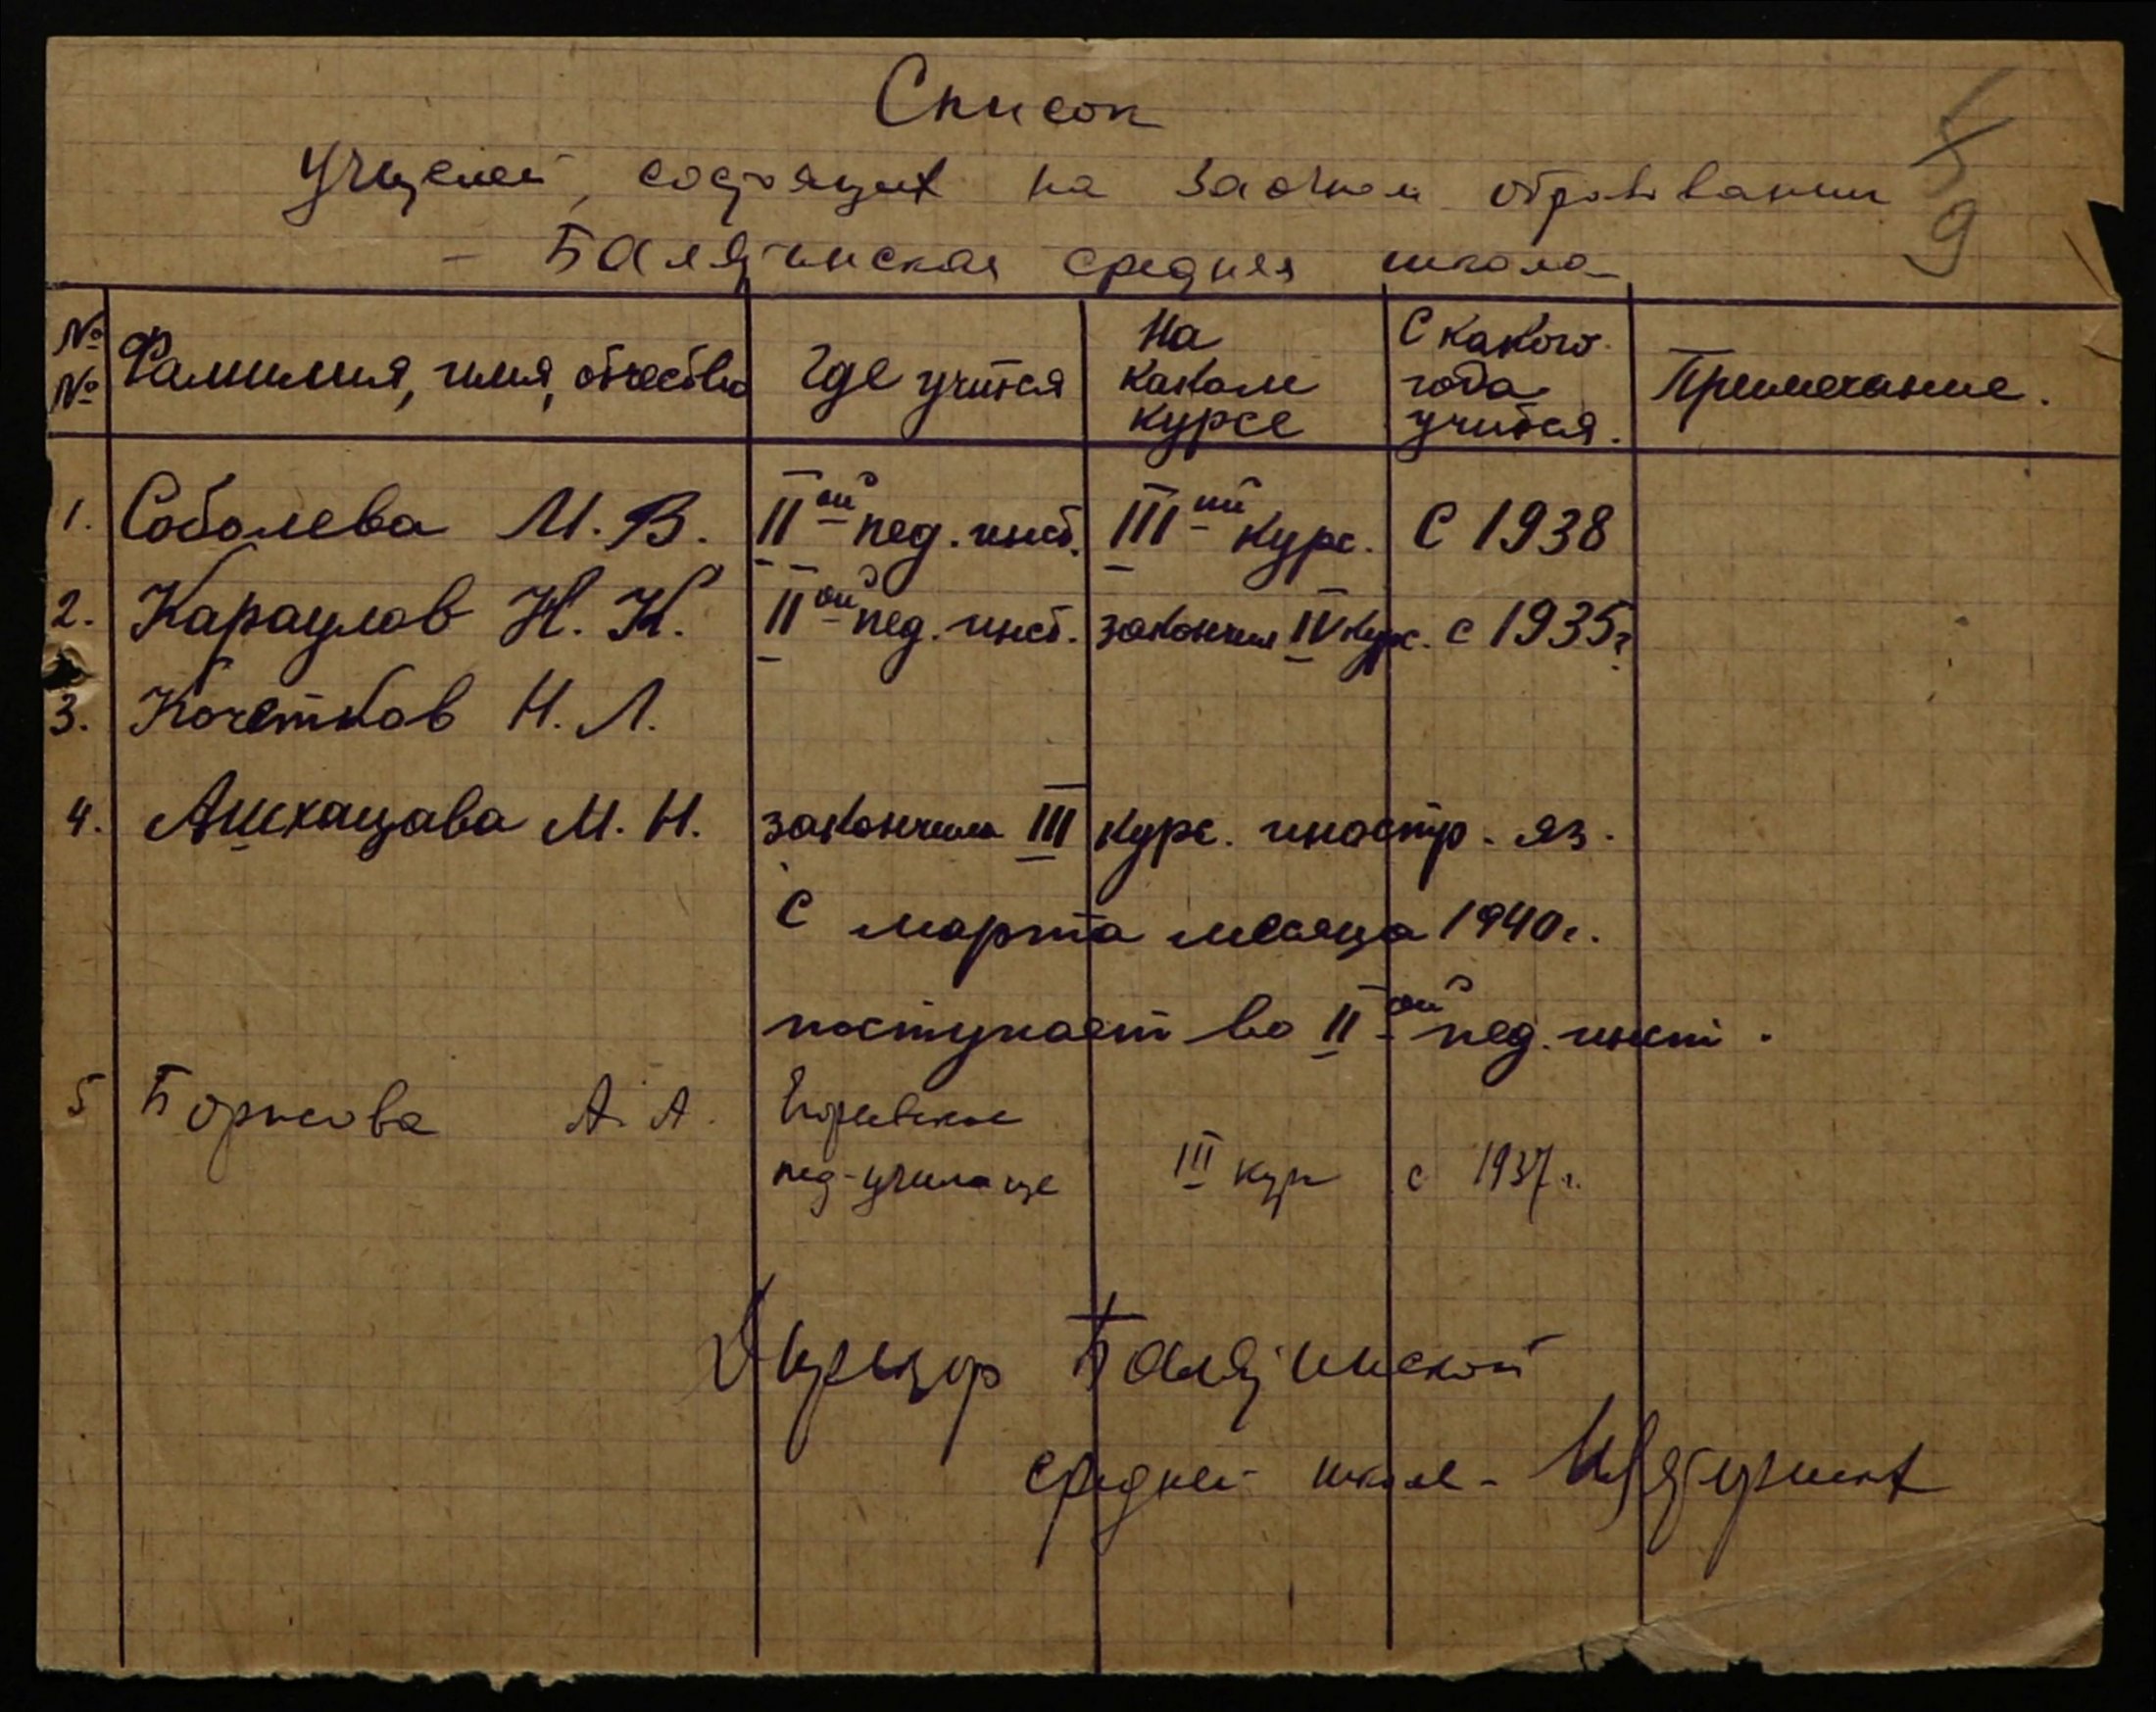 Список
учителей, состоящих на заочном образовании
- Балятинская средняя школа
№ № Фамилия, имя, отчество Где учится На каком курсе С какого года учится. Примечание.
1. Соболева М. В. II ой пед. инст. III ий курс. С 1938
2. Караулов Н. К. II ой пед. инст. закончил IV курс. с 1935 г
3. Кочетков Н. Л.
4. Ашхацава М. Н. закончила III курс. иностр. яз.
с марта месяца 1940 г.
поступает во II ой пед. инст.
5 Борисова А. А. Егорьевское
пед-училище III кур с 1937 г.
Директор Балятинской
средней школы -
9